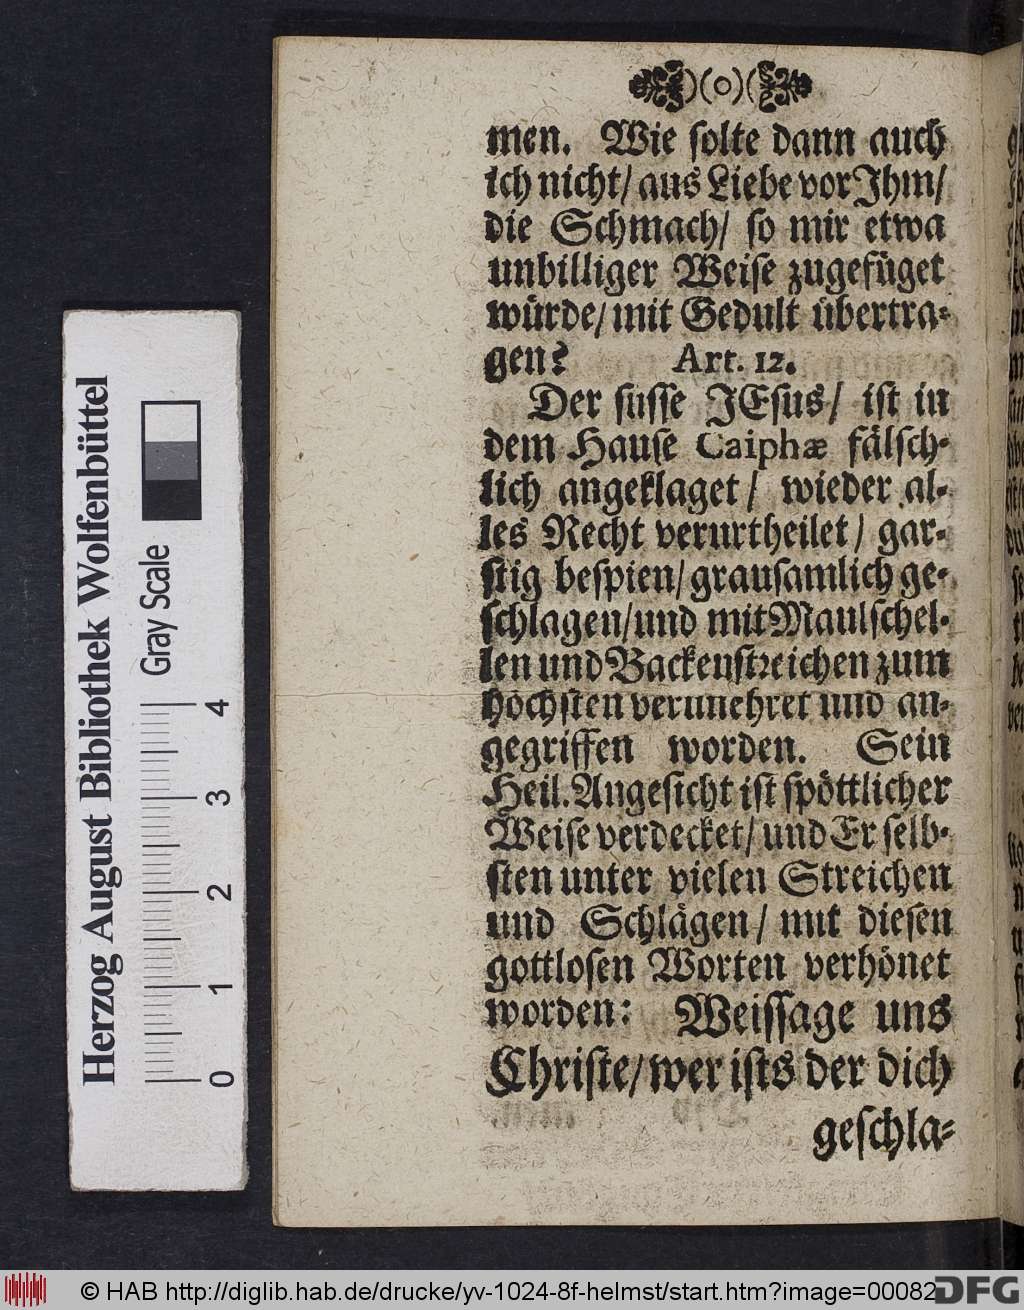 )(o)(
men. Wie ſolte dann auch
ich nicht/ aus Liebe vor Ihm/
die Schmach/ ſo mir etwa
unbilliger Weiſe zugefüget
würde/ mit Gedult übertra-
gen? Art. 12.
Der ſuſſe JEſus/ iſt in
dem Hauſe Caiphæ fälſch-
lich angeklaget/ wieder al-
les Recht verurtheilet/ gar-
ſtig beſpien/ grauſamlich ge-
ſchlagen/ und mit Maulſchel-
len und Backenſtreichen zum
höchſten verunehret und an-
gegriffen worden. Sein
Heil. Angeſicht iſt ſpöttlicher
Weiſe verdecket/ und Er ſelb-
ſten unter vielen Streichen
und Schlägen/ mit dieſen
gottloſen Worten verhönet
worden: Weiſſage uns
Chriſte/ wer iſts der dich
geſchla-
Herzog August Bibliothek Wolfenbüttel
Gray Scale
0 1 2 3 4
© HAB http://diglib.hab.de/drucke/yv-1024-8f-helmst/start.htm?image=00082
DFG